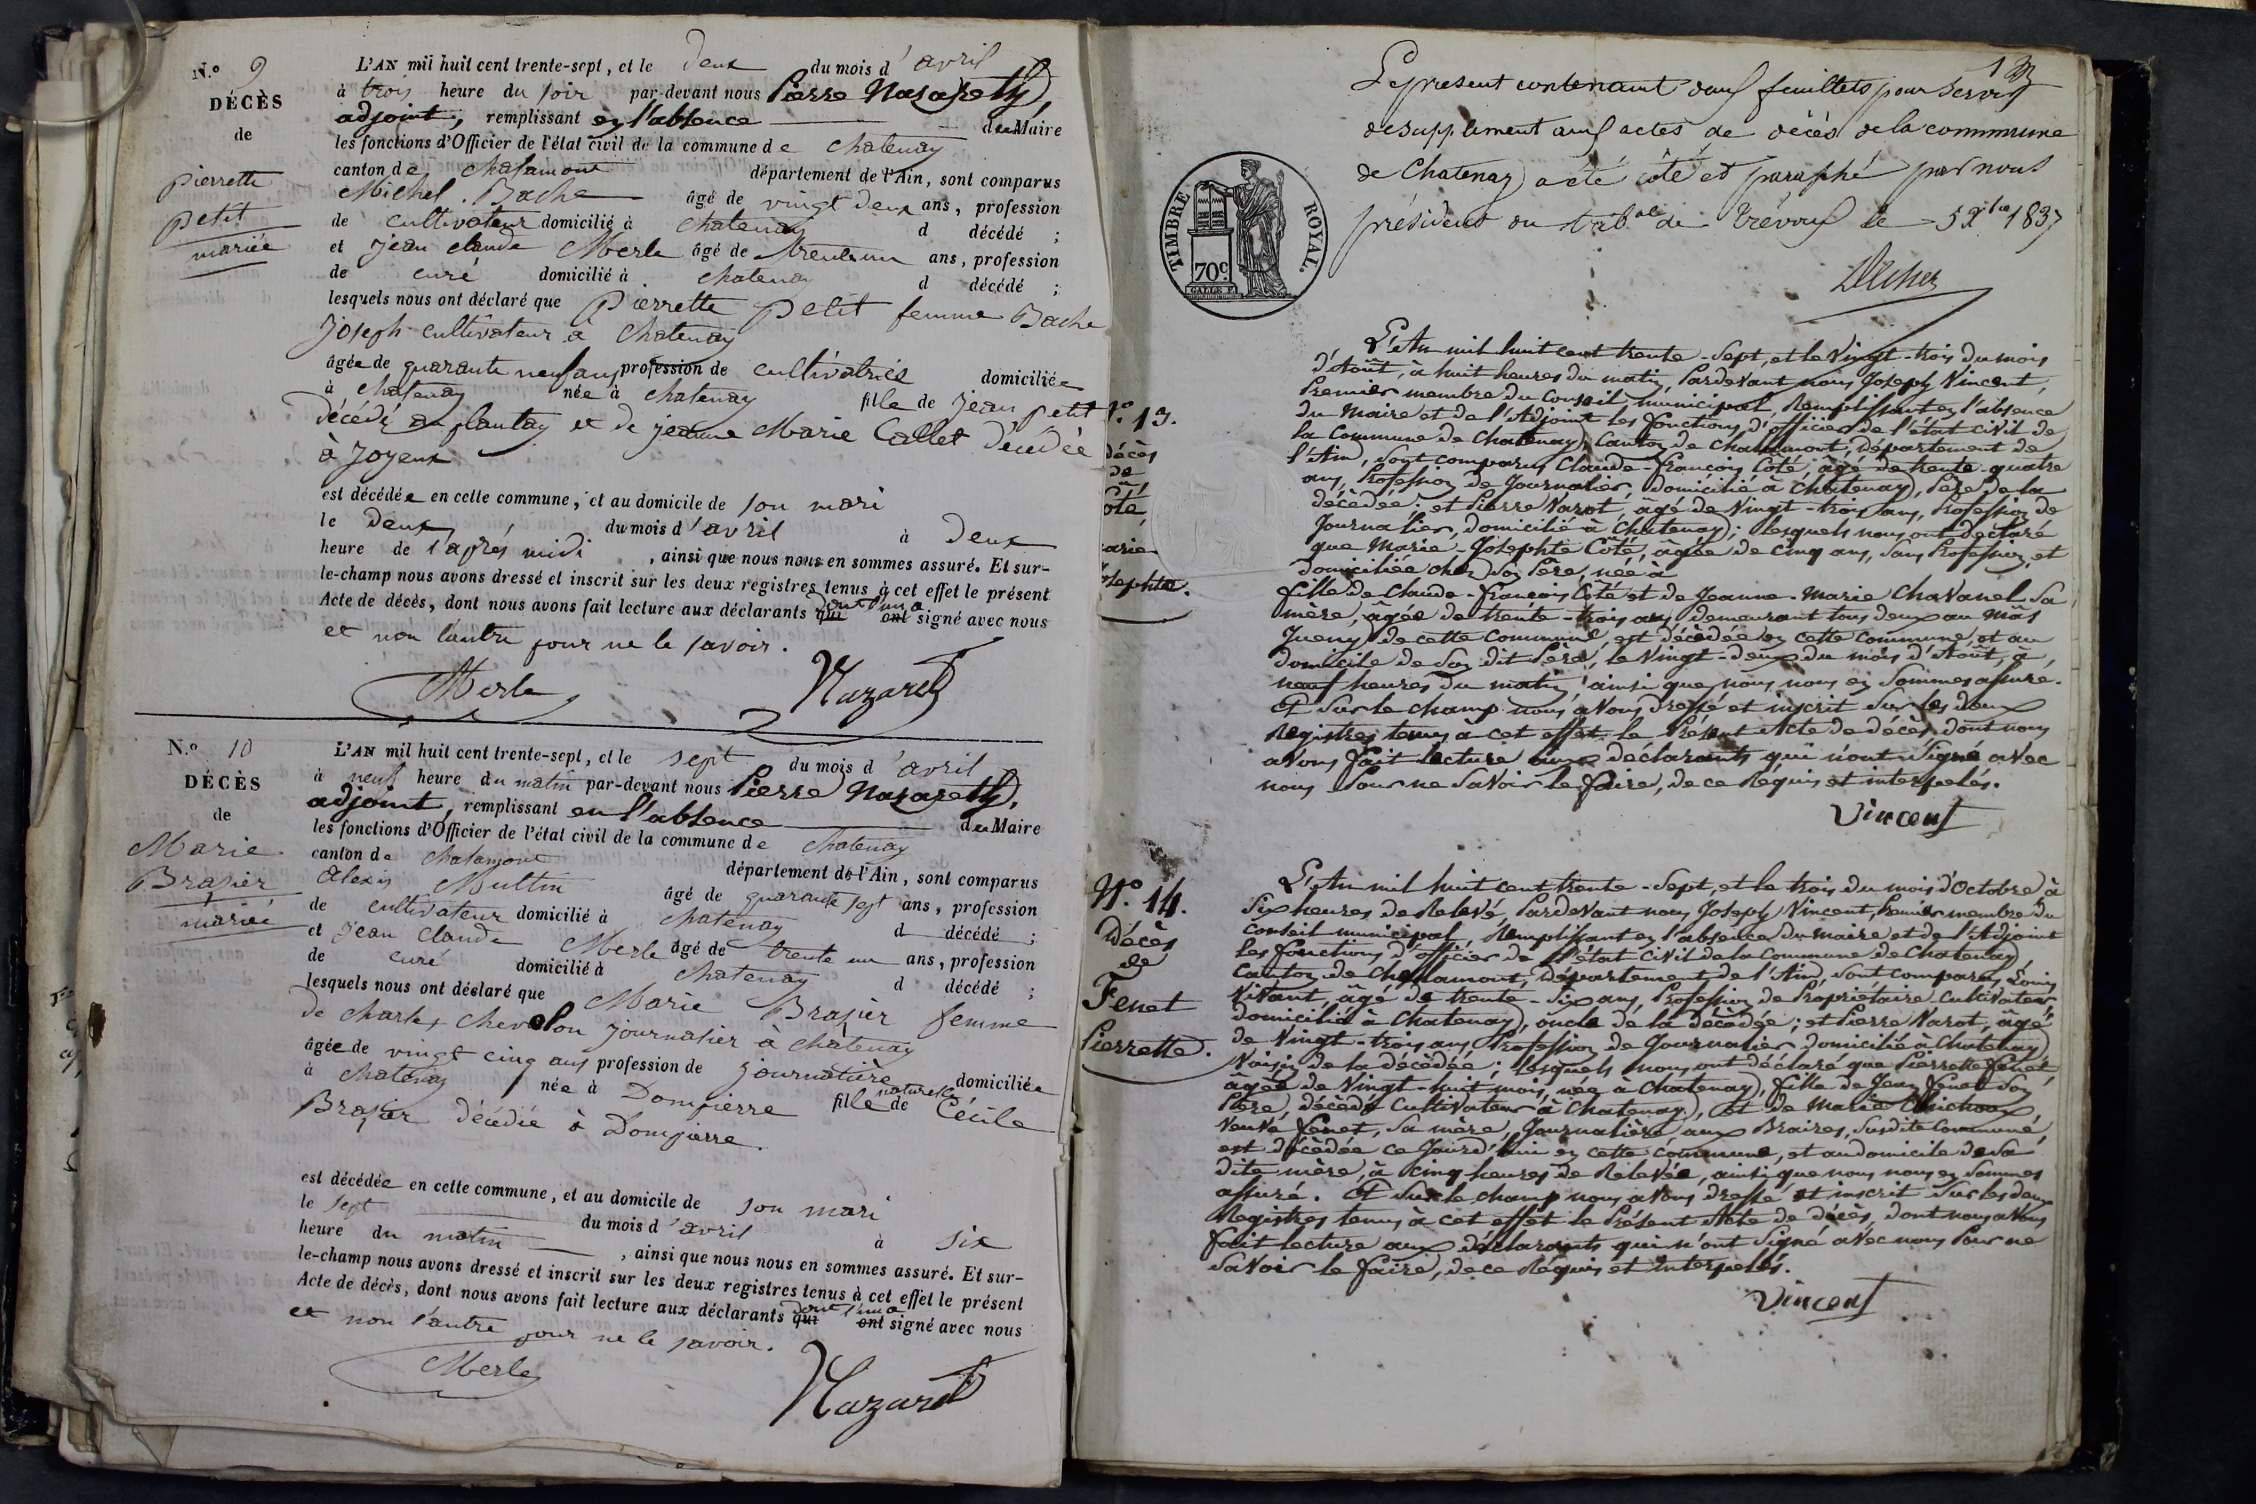 N.o 9
DÉCÈS
de
pierrette
petit
mariée
L'AN mil huit cent trente-sept, et le deux du mois d'avril
à trois heure du soir par-devant nous Pierre Nazareth,
adjoint, remplissant en l'absence du Maire
les fonctions d'Officier de l'état civil de la commune de chatenay
canton de chalamont département de l'Ain, sont comparus
Michel Bache âgé de vingt deux ans, profession
de cultivateur domicilié à chatenay d décédé ;
et jean claude Merle âgé de trente un ans, profession
de curé domicilié à chatenay d décédé ;
lesquels nous ont déclaré que pierrette petit femme Bache
joseph cultivateur à chatenay
âgée de quarante neuf ans profession de cultivatrice domiciliée
à chatenay née à chatenay fille de jean petit
décédé au plantay et de jeanne Marie Callet décédée
à joyeux
est décédée en cette commune, et au domicile de son mari
le deux du mois d'avril à deux
heure de l'après midi, ainsi que nous nous en sommes assuré. Et sur-
le-champ nous avons dressé et inscrit sur les deux registres tenus à cet effet le présent
Acte de décès, dont nous avons fait lecture aux déclarants qui ont dont l'un a signé avec nous
et non l'autre pour ne le savoir.
Merle Nazareth
N.o 10
DÉCÈS
de
Marie
Brasier
mariée
L'AN mil huit cent trente-sept, et le sept du mois d'avril
à neuf heure du matin par-devant nous Pierre Nazareth,
adjoint, remplissant en l'absence du Maire
les fonctions d'Officier de l'état civil de la commune de chatenay
canton de chalamont département de l'Ain, sont comparus
Alexis Multin âgé de quarante sept ans, profession
de cultivateur domicilié à chatenay d décédé ;
et jean claude Merle âgé de trente un ans, profession
de curé domicilié à chatenay d décédé ;
lesquels nous ont déclaré que Marie Brasier femme
de charles chevalon journalier à chatenay
âgée de vingt cinq ans profession de journalière domiciliée
à chatenay née à Dompierre fille naturelle de Cécile
Brasier décédée à Dompierre.
est décédée en cette commune, et au domicile de son mari
le sept du mois d'avril à six
heure du matin, ainsi que nous nous en sommes assuré. Et sur-
le-champ nous avons dressé et inscrit sur les deux registres tenus à cet effet le présent
Acte de décès, dont nous avons fait lecture aux déclarants qui ont dont l'un a signé avec nous
et non l'autre pour ne le savoir.
Merle Nazareth
Le present contenant deux feuillets pour servir
de supplement aux actes de décès de la commmune
de Chatenay a été côté et paraphé par nous
président du trib.al de Trévoux le 5 1837
TIMBRE ROYAL.
70c.
N.o 13.
Décès
de
Coté,
Marie
Josephte.
L'An mil huit cent trente-sept, et le Vingt-trois du mois
d'Août, à huit heures du matin, Pardevant nous Joseph Vincent,
Premier membre du Conseil municipal, Remplissant en l'absence
du Maire et de l'Adjoint les fonctions d'officier de l'état civil de
la Commune de Chatenay, Canton de Chalamont, département de
l'Ain, sont comparus Claude-françois Coté, âgé de trente-quatre
ans, Profession de Journalier, domicilié à Chatenay, Père de la
décédée; et Pierre Varot, âgé de Vingt-trois ans, Profession de
Journalier, domicilié à Chatenay; lesquels nous ont déclaré
que Marie-Josephte Côté, âgée de Cinq ans, sans Profession, et
domiciliée chez son Père, née à
fille de Claude-françois Côté et de Jeanne-Marie Chavanel sa
mère, âgée de trente-trois ans, demeurant tous deux au Mas
Jueny de cette Commune, est décédée en cette Commune, et au
domicile de son dit Père, le Vingt-deux du mois d'Août, à
neuf heures du matin, ainsi que nous nous en sommes assuré.
Et sur le champ nous avons dressé et inscrit sur les deux
Registres tenus à cet effet le Présent Acte de décès, dont nous
avons fait lecture aux déclarants qui n'ont Signé avec
nous Pour ne savoir le faire, de ce Réquis et interpelés.
Vincent
N.o 14.
Décès
de
Fenet
Pierrette.
L'An mil huit cent trente-sept, et le trois du mois d'Octobre à
Six heures de Relevé, Pardevant nous Joseph Vincent, Premier membre du
Conseil municipal, Remplissant en l'absence du maire et de l'Adjoint
les fonctions d'officier de l'état Civil de la Commune de Chatenay,
Canton de Chalamont, département de l'Ain, sont comparus Louis
Vivant, âgé de trente-six ans, Profession de Propriétaire Cultivateur,
domicilié à Chatenay, oncle de la décédée; et Pierre Varot, âgé
de Vingt-trois ans Profession de Journalier domicilié à Chatenay,
Voisin de la décédée; lesquels nous ont déclaré que Pierrette fenet,
âgée de Vingt-huit mois, née à Chatenay, fille de Jean fenet son
Père, décédé Cultivateur à Chatenay, et de Marie
Veuve fenet, sa mère, Journalière aux Braires, susdite Commune,
est décédée ce Jourd'hui en cette commune, et au domicile de sa
dite mère, à Cinq heures de Relevée, ainsi que nous nous en sommes
assuré. Et sur le champ nous avons dressé et inscrit sur les deux
Registres tenus à cet effet le Présent Acte de décès, dont nous avons
fait lecture aux déclarants qui n'ont Signé avec nous Pour ne
savoir le faire, de ce Réquis et interpelés.
Vincent